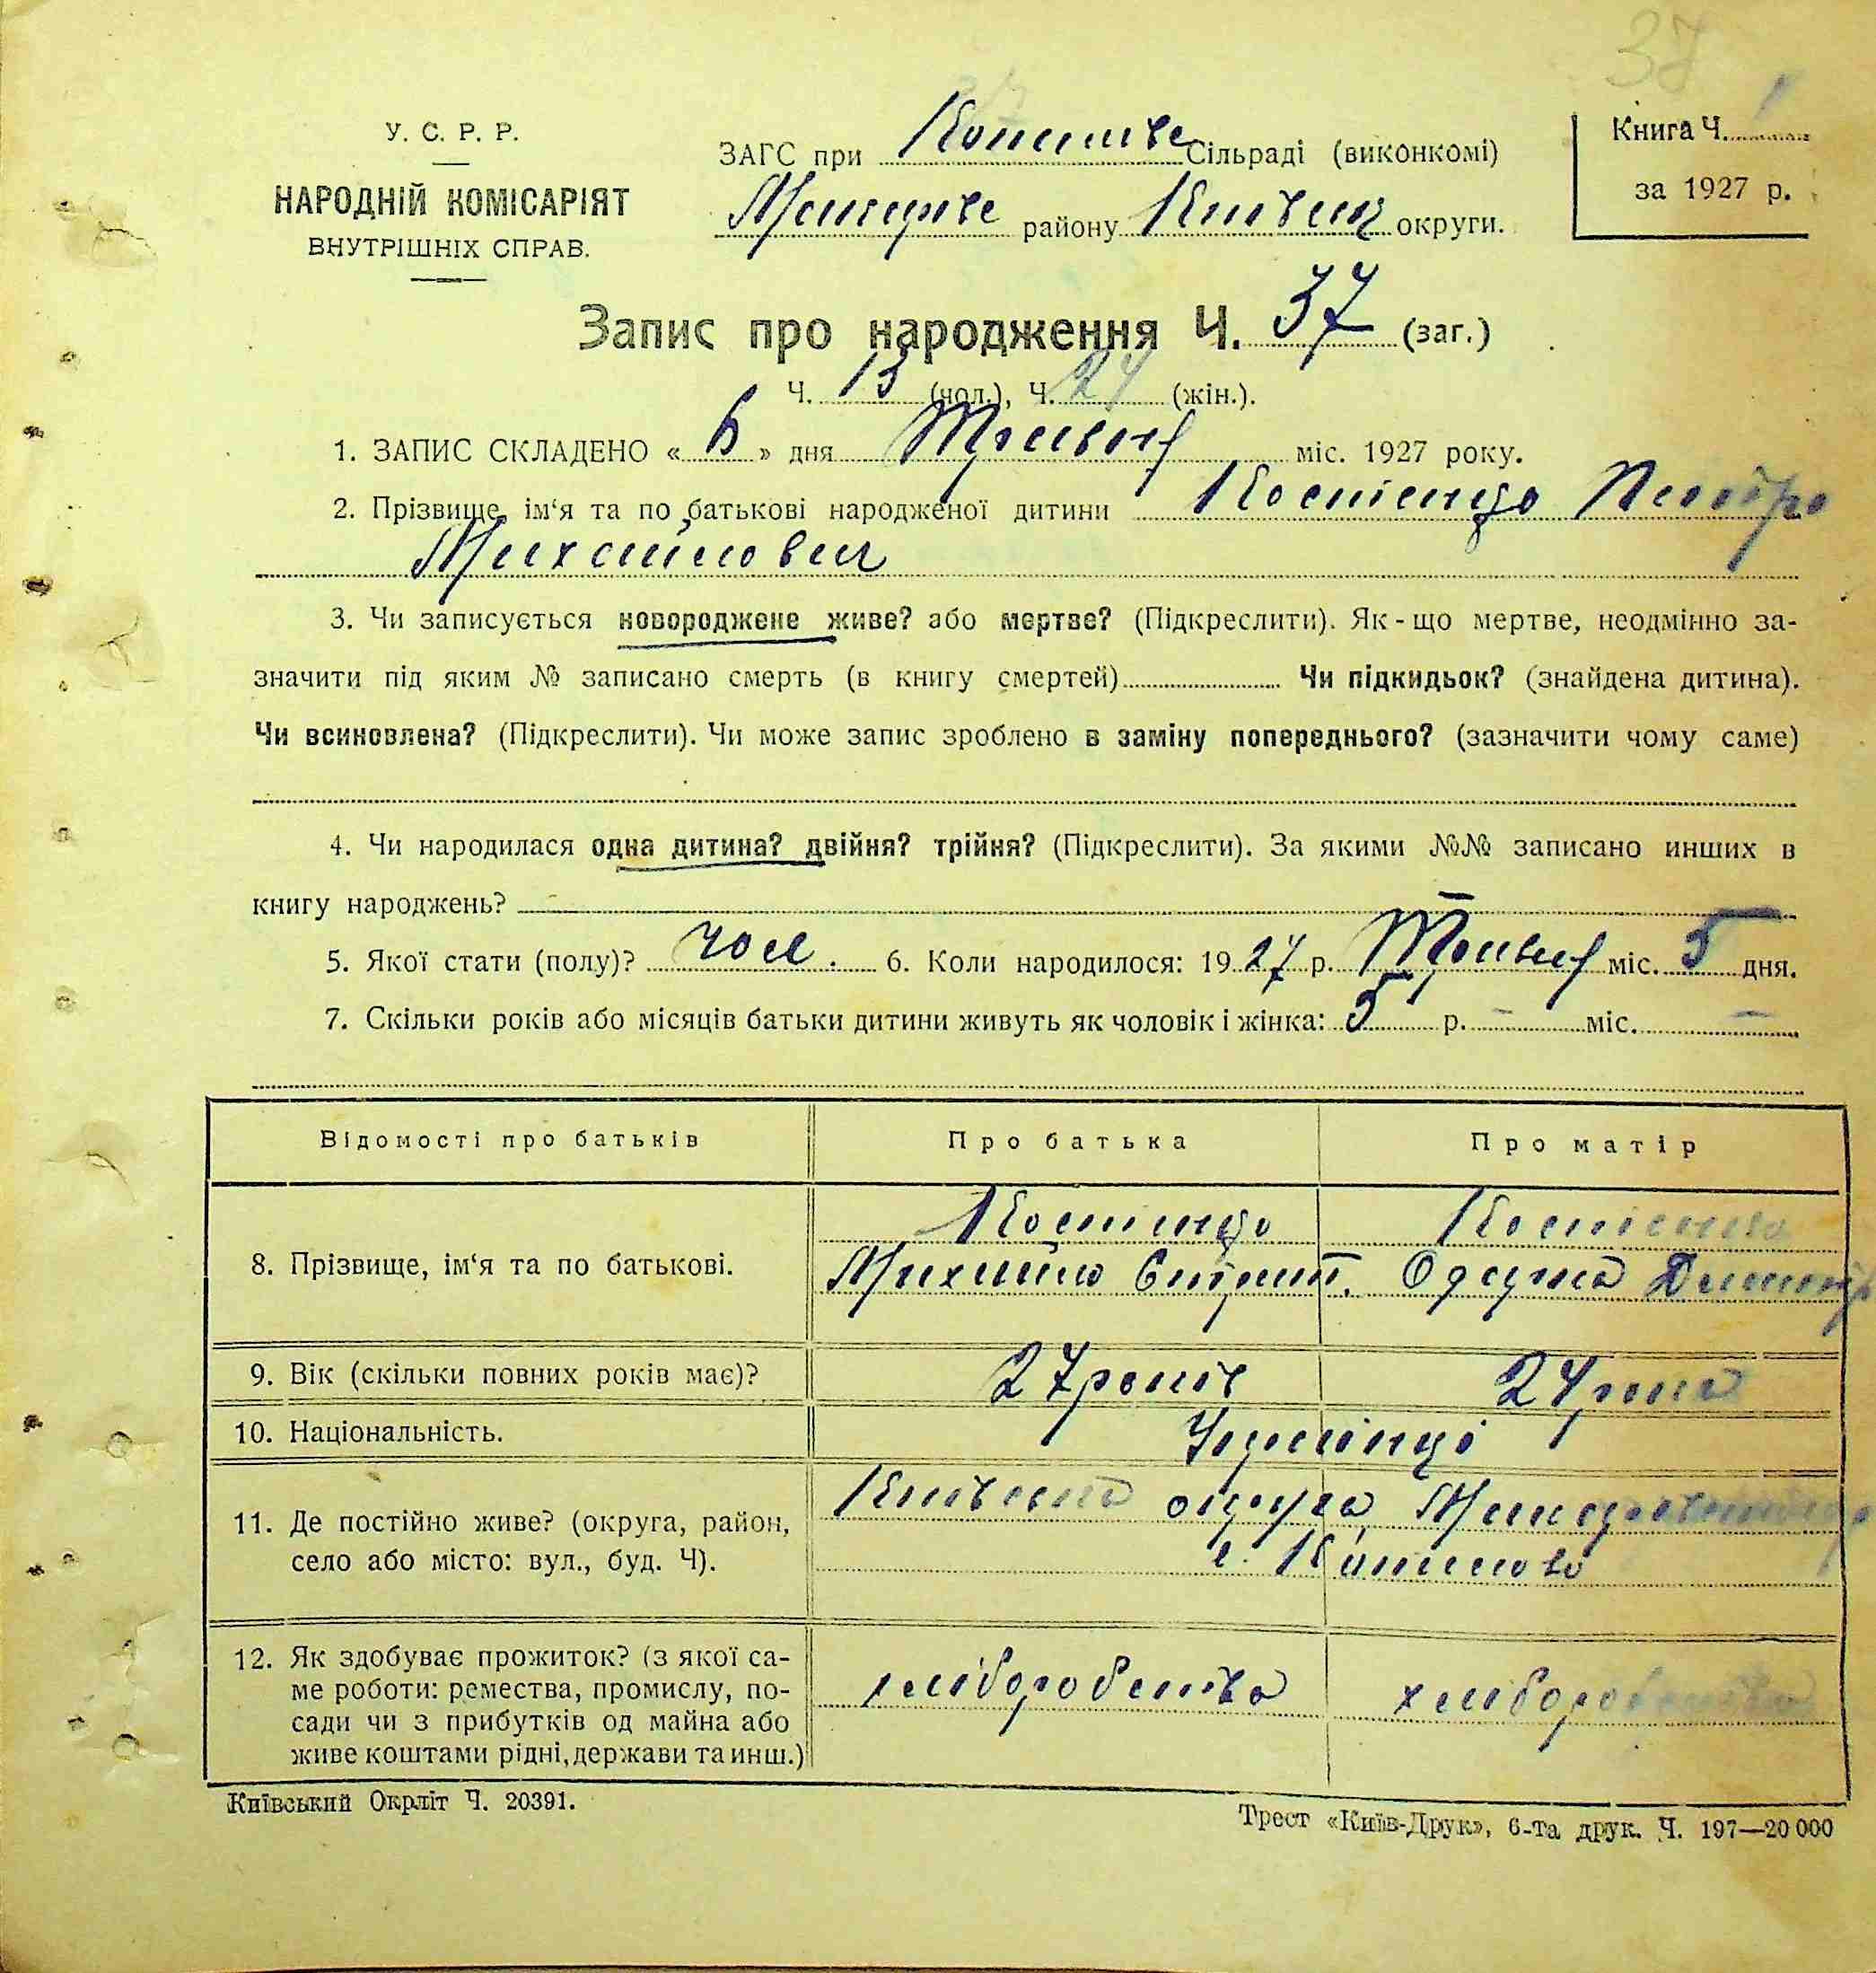 37
У. С. Р. Р.
НАРОДНІЙ КОМІСАРІЯТ
ВНУТРІШНІХ СПРАВ.
ЗАГС при Копилів Сільраді (виконкомі)
Макарів району Київськ округи.
Книга Ч. 1
за 1927 р.
Запис про народження Ч. 37 (заг.)
Ч. 13 (чол.), Ч. 24 (жін.).
1. ЗАПИС СКЛАДЕНО « 6 » дня Травня міс. 1927 року.
2. Прізвище, ім‘я та по батькові народженої дитини Костенко Петро
Михайлович
3. Чи записується новороджене живе? або мертве? (Підкреслити). Як-що мертве, неодмінно за-
значити під яким № записано смерть (в книгу смертей) Чи підкидьок? (знайдена дитина).
Чи всиновлена? (Підкреслити). Чи може запис зроблено в заміну попереднього? (зазначити чому саме)
4. Чи народилася одна дитина? двійня? трійня? (Підкреслити). За якими №№ записано инших в
книгу народжень? —
5. Якої стати (полу)? чол. 6. Коли народилося: 1927 р. Травня міс. 5 дня.
7. Скільки років або місяців батьки дитини живуть як чоловік і жінка: 5 р. — міс. —
Відомості про батьків Про батька Про матір
8. Прізвище, ім‘я та по батькові. Костенко Костенко
Михайло Одарка
9. Вік (скільки повних років має)? 27 років 24 роки
10. Національність. Українці
11. Де постійно живе? (округа, район, село або місто: вул., буд. Ч). Київська округа, Макарівський
с. Копилово
12. Як здобуває прожиток? (з якої са-
ме роботи: ремества, промислу, по-
сади чи з прибутків од майна або
живе коштами рідні, держави та инш.)
хліборобства хліборобства
Київський Окрліт Ч. 20391.
Трест «Київ-Друк», 6-та друк. Ч. 197—20 000